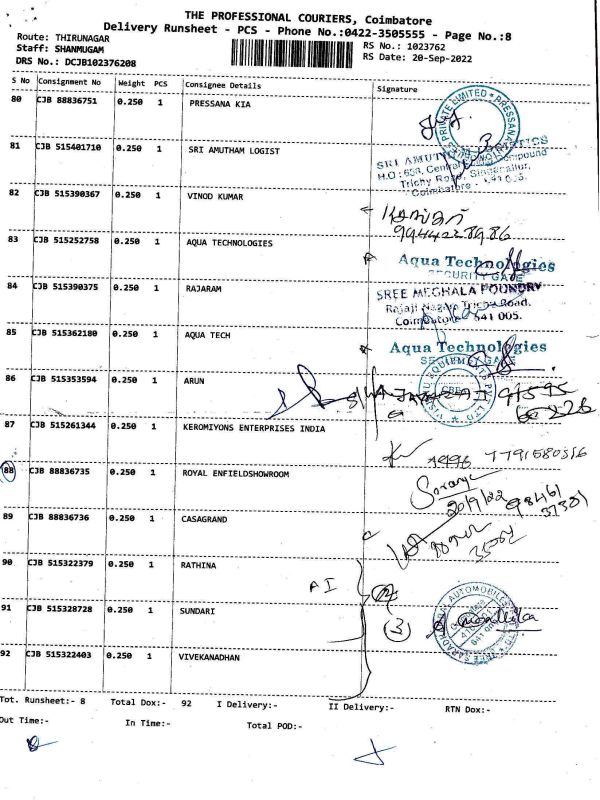 THE PROFESSIONAL COURIERS, Coimbatore
Delivery Runsheet - PCS - Phone No.:0422-3505555 - Page No.:8
Route: THIRUNAGAR
RS No.: 1023762
Staff: SHANMUGAM
RS Date: 20-Sep-2022
DRS No.: DCJB102376208
S No Consignment No Weight PCS Consignee Details Signature
80 CJB 88836751 0.250 1 PRESSANA KIA
81 CJB 515401710 0.250 1 SRI AMUTHAM LOGIST
SRI AMUTHAM
Trichy Road, Singanallur,
82 CJB 515390367 0.250 1 VINOD KUMAR
9944228986
83 CJB 515252758 0.250 1 AQUA TECHNOLOGIES
Aqua Technologies
SECURITY GATE
84 CJB 515390375 0.250 1 RAJARAM
SREE MEGHALA FOUNDRY
Rajaji Nagar Trichy Road.
Coimbatore 641 005.
85 CJB 515362180 0.250 1 AQUA TECH
Aqua Technologies
SECURITY GATE
86 CJB 515353594 0.250 1 ARUN
87 CJB 515261344 0.250 1 KEROMIYONS ENTERPRISES INDIA
88 CJB 88836735 0.250 1 ROYAL ENFIELDSHOWROOM
20/9/22
89 CJB 88836736 0.250 1 CASAGRAND
90 CJB 515322379 0.250 1 RATHINA
AI
91 CJB 515328728 0.250 1 SUNDARI
(3)
92 CJB 515322403 0.250 1 VIVEKANADHAN
Tot. Runsheet:- 8 Total Dox:- 92 I Delivery:- II Delivery:- RTN Dox:-
Out Time:- In Time:- Total POD:-